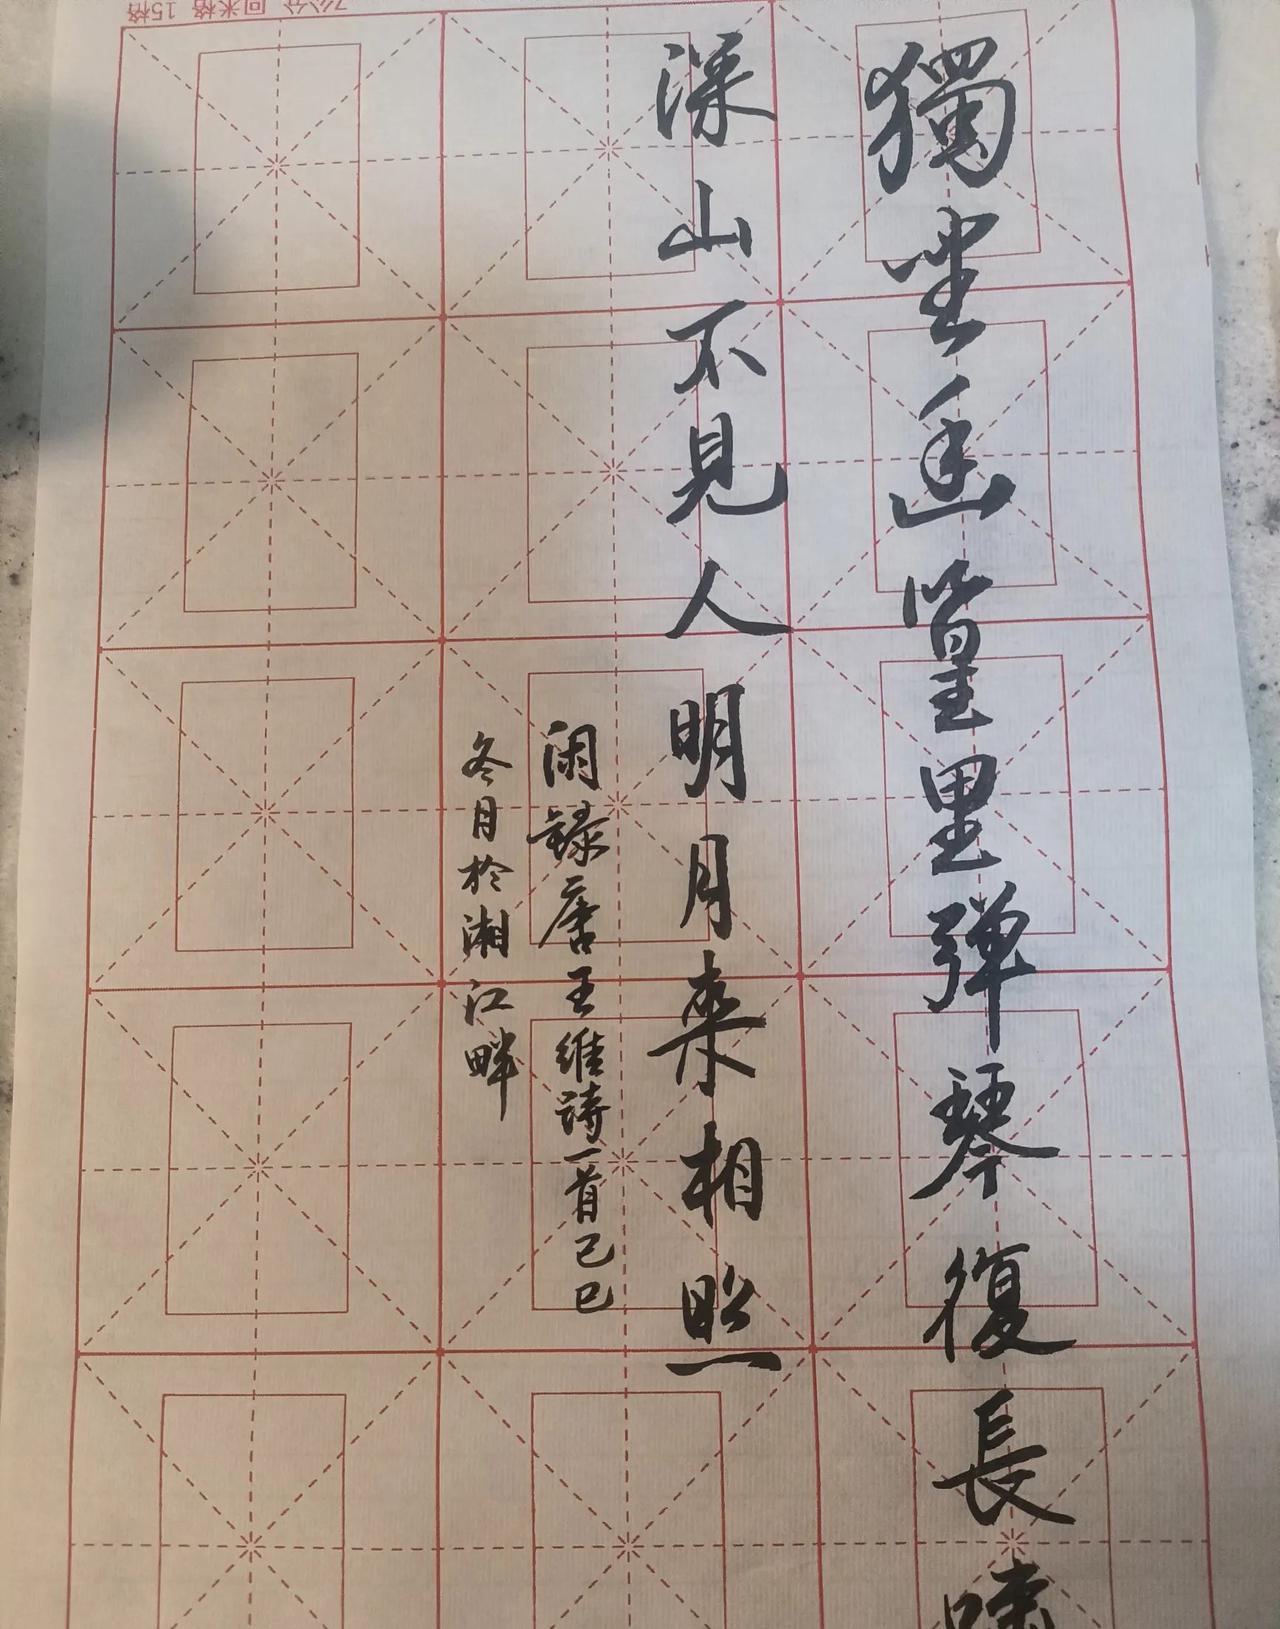 7公分 回米格 15格
獨坐幽篁里弹琴復長嘯
深山不見人明月来相照
闲録唐王維詩一首己巳
冬月於湘江畔